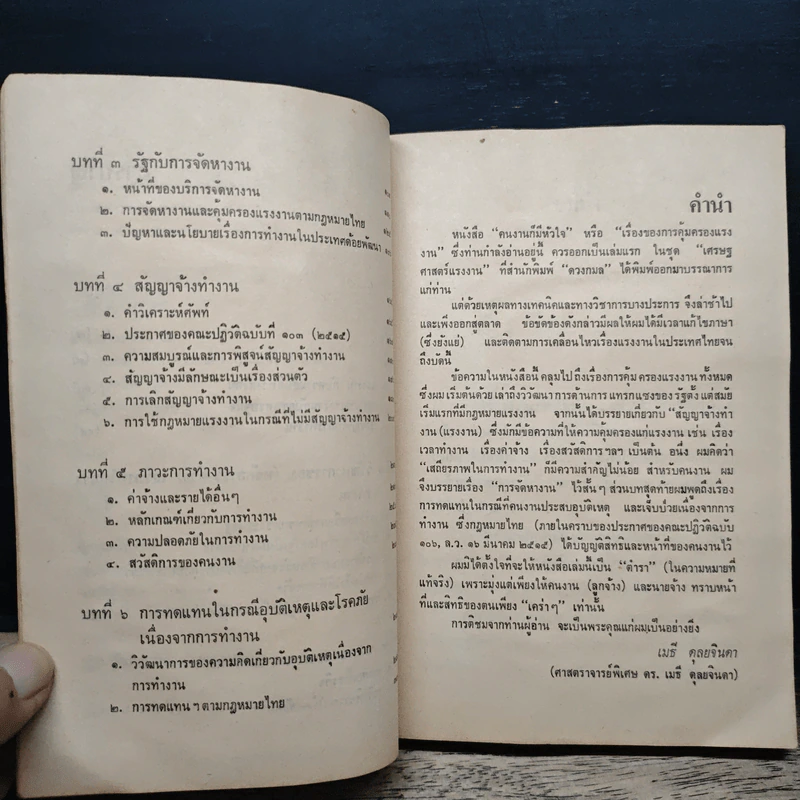 บทที่ ๓ รัฐกับการจัดหางาน
๑. หน้าที่ของบริการจัดหางาน
๒. การจัดหางานและคุ้มครองแรงงานตามกฎหมายไทย
๓. ปัญหาและนโยบายเรื่องการทำงานในประเทศด้อยพัฒนา
บทที่ ๔ สัญญาจ้างทำงาน
๑. คำวิเคราะห์ศัพท์
๒. ประกาศของคณะปฏิวัติฉบับที่ ๑๐๓ (๒๕๑๕)
๓. ความสมบูรณ์และการพิสูจน์สัญญาจ้างทำงาน
๔. สัญญาจ้างมีลักษณะเป็นเรื่องส่วนตัว
๕. การเลิกสัญญาจ้างทำงาน
๖. การใช้กฎหมายแรงงานในกรณีที่ไม่มีสัญญาจ้างทำงาน
บทที่ ๕ ภาวะการทำงาน
๑. ค่าจ้างและรายได้อื่นๆ
๒. หลักเกณฑ์เกี่ยวกับการทำงาน
๓. ความปลอดภัยในการทำงาน
๔. สวัสดิการของคนงาน
บทที่ ๖ การทดแทนในกรณีอุบัติเหตุและโรคภัย
เนื่องจากการทำงาน
๑. วิวัฒนาการของความคิดเกี่ยวกับอุบัติเหตุเนื่องจาก
การทำงาน
๒. การทดแทน ฯ ตามกฎหมายไทย
คำนำ
หนังสือ “คนงานก็มีหัวใจ” หรือ “เรื่องของการคุ้มครองแรง
งาน” ซึ่งท่านกำลังอ่านอยู่นี้ ควรออกเป็นเล่มแรก ในชุด “เศรษฐ
ศาสตร์แรงงาน” ที่สำนักพิมพ์ “ดวงกมล” ได้พิมพ์ออกมาบรรณาการ
แก่ท่าน
แต่ด้วยเหตุผลทางเทคนิคและทางวิชาการบางประการ จึงล่าช้าไป
และเพิ่งออกสู่ตลาด ข้อขัดข้องดังกล่าวมีผลให้ผมได้มีเวลาแก้ไขภาษา
(ซึ่งยังแย่) และติดตามการเคลื่อนไหวเรื่องแรงงานในประเทศไทยจน
ถึงบัดนี้
ข้อความในหนังสือนี้ คลุมไปถึงเรื่องการคุ้มครองแรงงานทั้งหมด
ซึ่งผมเริ่มต้นด้วยเล่าถึงวิวัฒนาการด้านการแทรกแซงของรัฐตั้งแต่สมัย
เริ่มแรกที่มีกฎหมายแรงงาน จากนั้นได้บรรยายเกี่ยวกับ “สัญญาจ้างทำ
งาน (แรงงาน) ซึ่งมักมีข้อความที่ให้ความคุ้มครองแก่แรงงาน เช่น เรื่อง
เวลาทำงาน เรื่องค่าจ้าง เรื่องสวัสดิการ ฯลฯ เป็นต้น อนึ่ง ผมคิดว่า
“เสถียรภาพในการทำงาน” ก็มีความสำคัญไม่น้อย สำหรับคนงาน ผม
จึงบรรยายเรื่อง “การจัดหางาน” ไว้สั้น ๆ ส่วนบทสุดท้ายผมพูดถึงเรื่อง
การทดแทนในกรณีที่คนงานประสบอุบัติเหตุ และเจ็บป่วยเนื่องจากการ
ทำงาน ซึ่งกฎหมายไทย (ภายในคราบของประกาศของคณะปฏิวัติฉบับ
๑๐๖, ล.ว. ๑๖ มีนาคม ๒๕๑๕) ได้บัญญัติสิทธิและหน้าที่ของคนงานไว้
ผมมิได้ตั้งใจที่จะให้หนังสือเล่มนี้เป็น “ตำรา” (ในความหมายที่
แท้จริง) เพราะมุ่งแต่เพียงให้คนงาน (ลูกจ้าง) และนายจ้าง ทราบหน้า
ที่และสิทธิของตนเพียง “คร่าๆ” เท่านั้น
การติชมจากท่านผู้อ่าน จะเป็นพระคุณแก่ผมเป็นอย่างยิ่ง
เมธี ดุลยจินดา
(ศาสตราจารย์พิเศษ ดร. เมธี ดุลยจินดา)